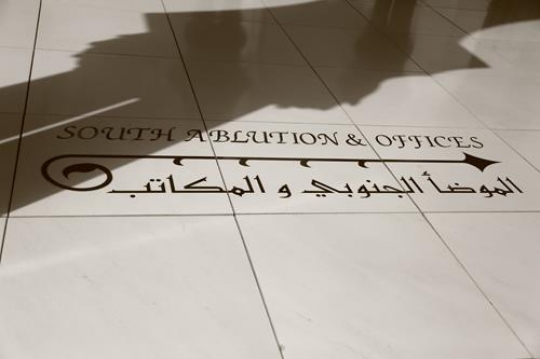 SOUTH ABLUTION & OFFICES
الموضأ الجنوبي و المكاتب